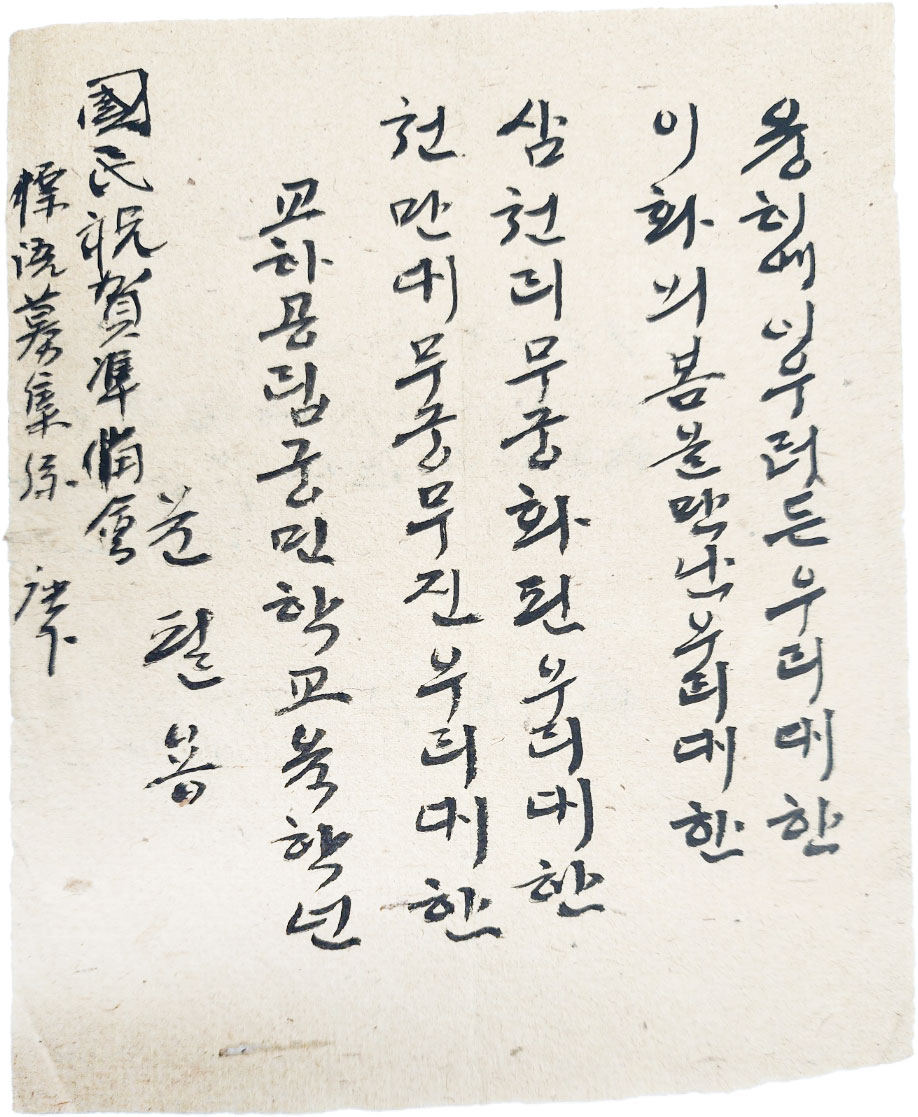 융히에이우러든우리대한
이화의봄을만난우리대한
삼천리무궁화된우리대한
천만대무궁무진우리대한
교하공립궁민학교육학년
필
國民祝賀準備會
標語募集係 座下